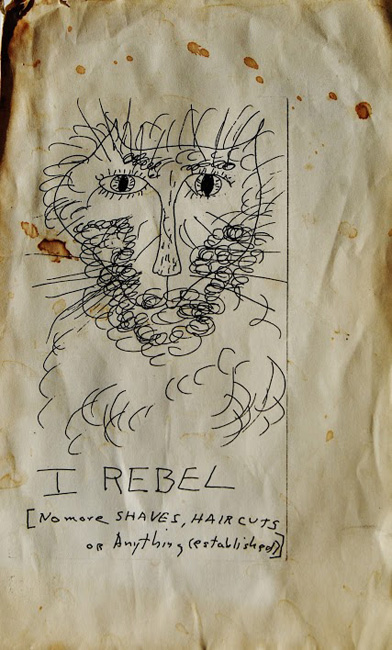 I REBEL
[No more SHAVES, HAIR CUTS
OR Anything (established)]